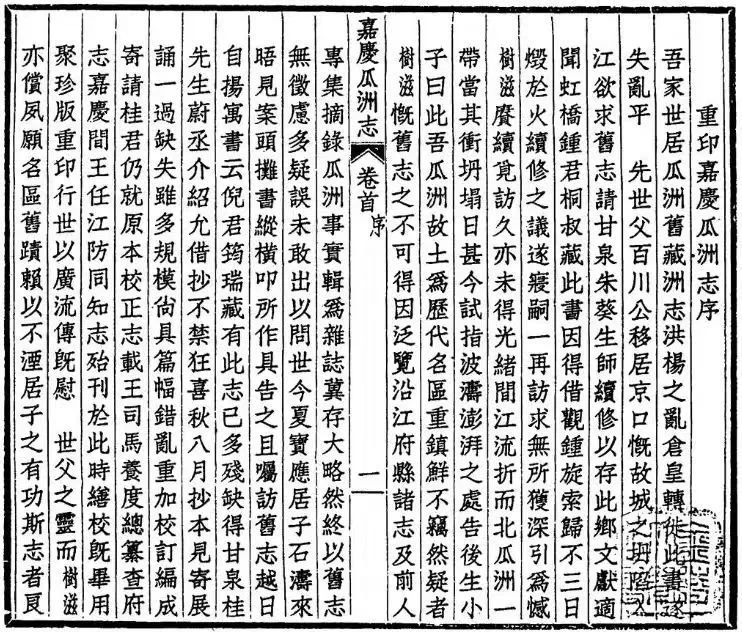 重印嘉慶瓜洲志序
吾家世居瓜洲舊藏洲志洪楊之亂倉皇轉徙此書遂
失亂平 先世父百川公移居京口慨故城之坍陷入
江欲求舊志請甘泉朱葵生師續修以存此鄉文獻適
聞虹橋鍾君桐叔藏此書因得借觀鍾旋索歸不三日
燬於火續修之議遂寢嗣一再訪求無所獲深引爲憾
樹滋賡續覓訪久亦未得光緒間江流折而北瓜洲一
帶當其衝坍塌日甚今試指波濤澎湃之處告後生小
子曰此吾瓜洲故土爲歷代名區重鎮鮮不竊然疑者
樹滋慨舊志之不可得因泛覽沿江府縣諸志及前人
嘉慶瓜洲志 卷首 序 一
專集摘錄瓜洲事實輯爲雜誌冀存大略然終以舊志
無徵慮多疑誤未敢出以問世今夏寶應居子石濤來
晤見案頭攤書縱橫叩所作具告之且囑訪舊志越日
自揚寓書云倪君筠瑞藏有此志已多殘缺得甘泉桂
先生蔚丞介紹允借抄不禁狂喜秋八月抄本見寄展
誦一過缺失雖多規模尙具篇幅錯亂重加校訂編成
寄請桂君仍就原本校正志載王司馬養度總纂查府
志嘉慶間王任江防同知志殆刊於此時繕校旣畢用
聚珍版重印行世以廣流傳旣慰 世父之靈而樹滋
亦償夙願名區舊蹟賴以不湮居子之有功斯志者良